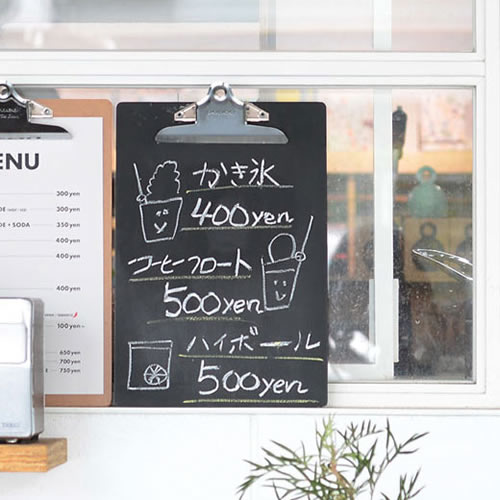 かき氷
400yen
コーヒーフロート
500yen
ハイボール
500yen
ENU
300yen
300yen
DE + SODA 350yen
400yen
400yen
400yen
100yen~
650yen
700yen
750yen